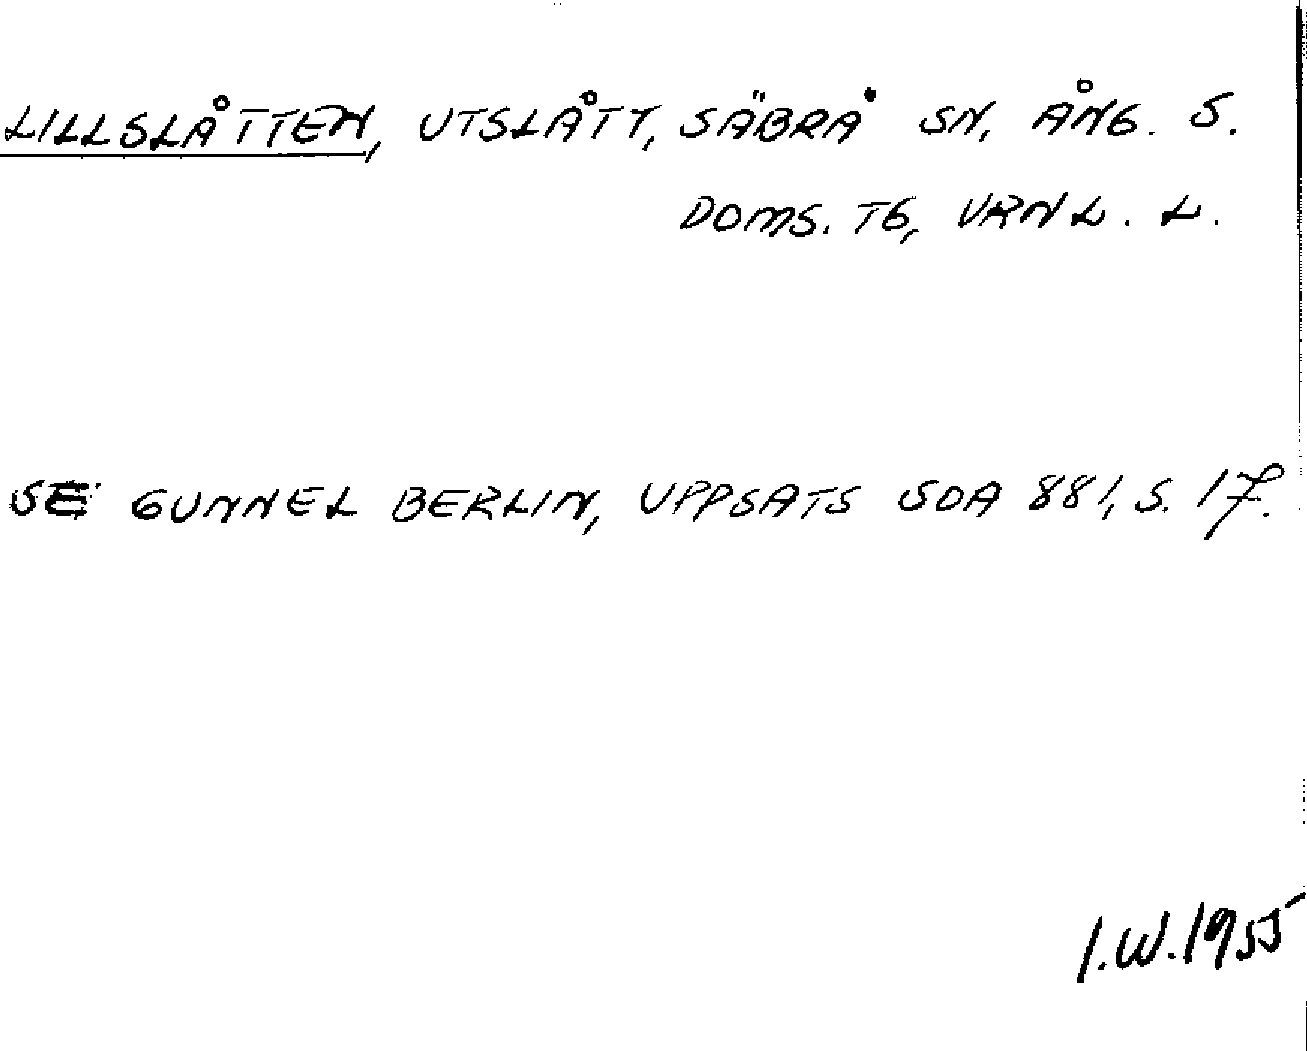 LILLSLÅTTEN, UTSLÅTT, SÄBRÅ SN, ÅNG. S.
DOMS. TG, VRNL. L.
SE GUNNEL BERLIN, UPPSATS SOA 881, S. 17.
I.W. 1955